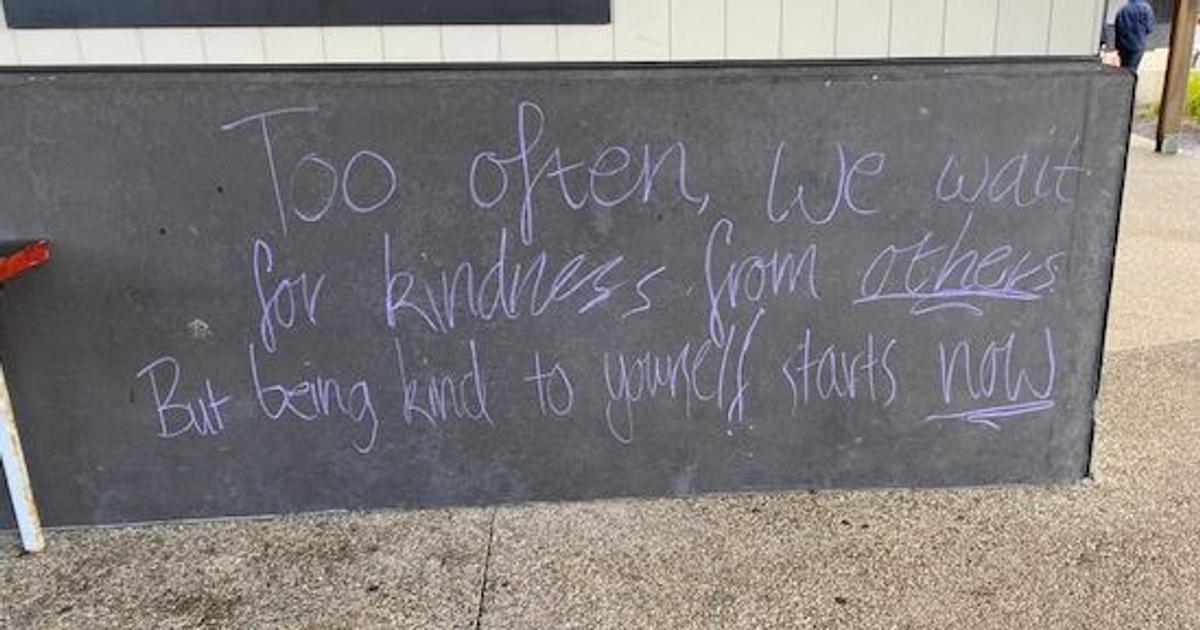 Too often, we wait
for kindness from others
But being kind to yourself starts now